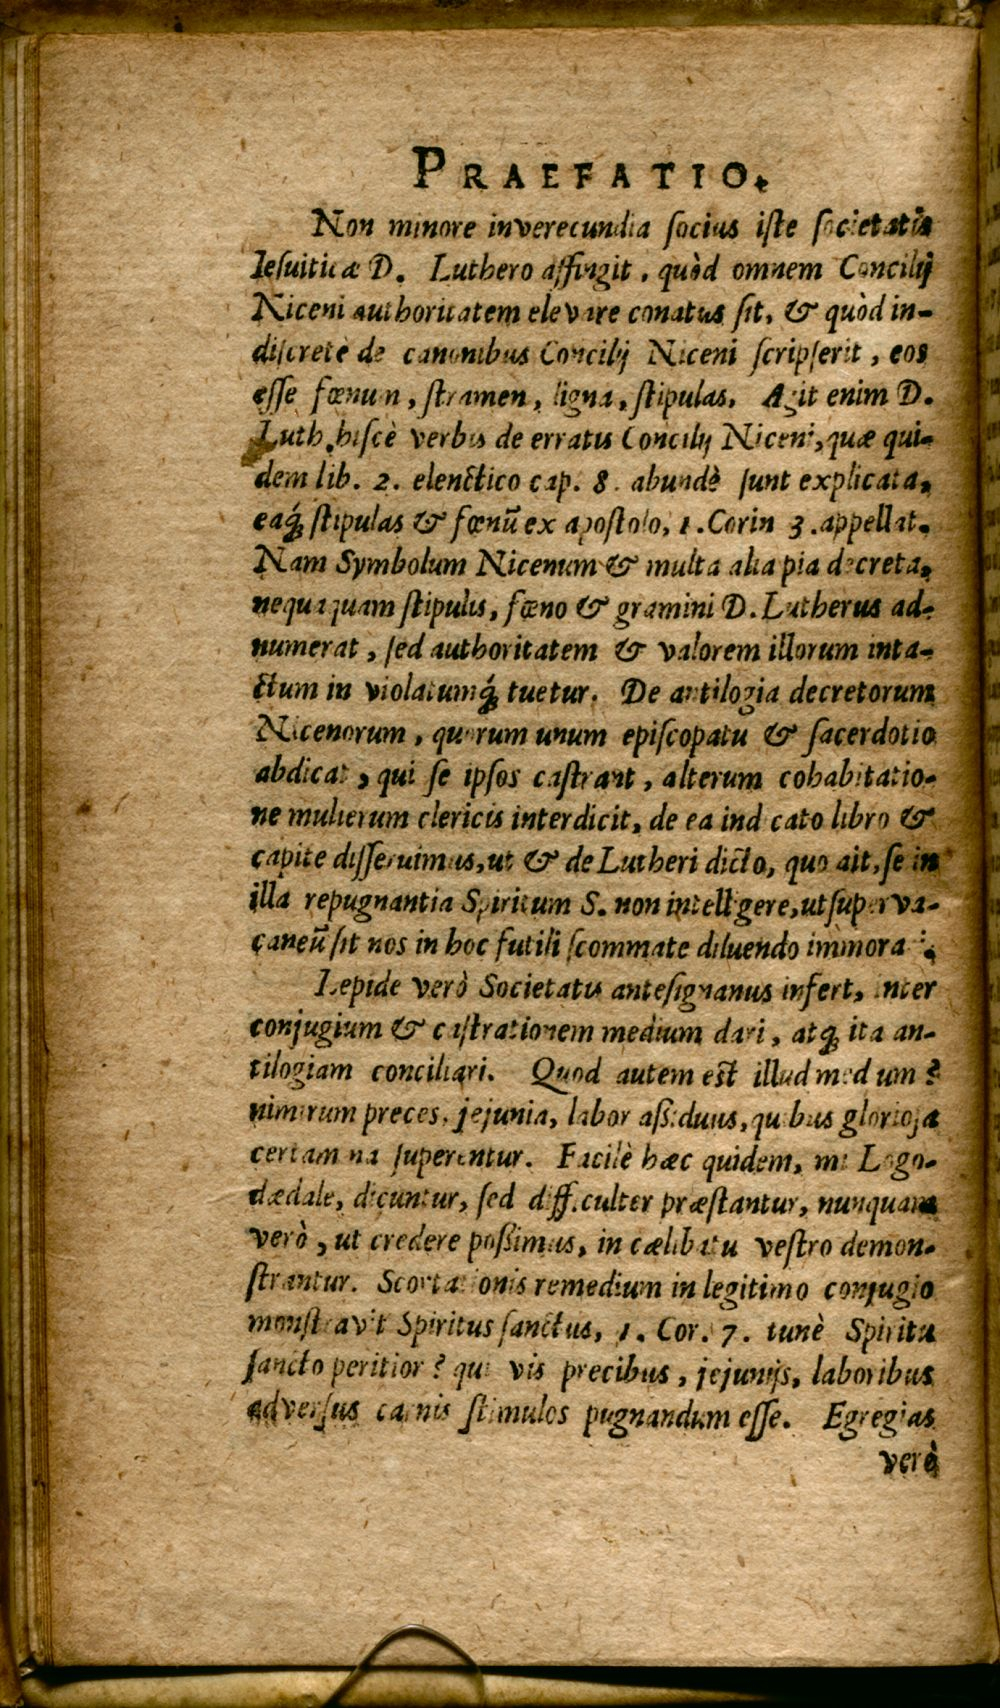 PRAEFATIO.
Non minore inverecundia socius iste societatis
Iesuiticæ D. Luthero affingit, quòd omnem Concilij
Niceni authoritatem elevare conatus sit, & quòd in-
discretè de canonibus Concilij Niceni scripserit, eos
esse fœnum, stramen, ligna, stipulas. Agit enim D.
Luth. hiscè verbis de erratis Concilij Niceni, quæ qui-
dem lib. 2. elenctico cap. 8. abundè sunt explicata,
eaq́; stipulas & fœnū ex apostolo, 1. Corin 3. appellat.
Nam Symbolum Nicenum & multa alia pia decreta,
nequaquam stipulis, fœno & gramini D. Lutherus ad-
numerat, sed authoritatem & valorem illorum inta-
ctum in violatumq́; tuetur. De antilogia decretorum
Nicenorum, quorum unum episcopatu & sacerdotio
abdicat, qui se ipsos castrant, alterum cohabitatio-
ne mulierum clericis interdicit, de ea indicato libro &
capite disseruimus, ut & de Lutheri dicto, quo ait, se in
illa repugnantia Spiritum S. non intelligere, ut superva-
caneū sit nos in hoc futili scommate diluendo immorari.
Lepide verò Societatis antesignanus infert, inter
conjugium & castrationem medium dari, atq; ita an-
tilogiam conciliari. Quod autem est illud medium?
nimirum preces, jejunia, labor aßiduus, quibus gloriosa
certamina superentur. Facilè hæc quidem, mi Logo-
dædale, dicuntur, sed difficulter præstantur, nunquam
verò, ut credere poßimus, in cælibatu vestro demon-
strantur. Scortationis remedium in legitimo conjugio
monstravit Spiritus sanctus, 1. Cor. 7. tunè Spiritu
sancto peritior? qui vis precibus, jejunijs, laboribus
adversus carnis stimulos pugnandum esse. Egregias
verò